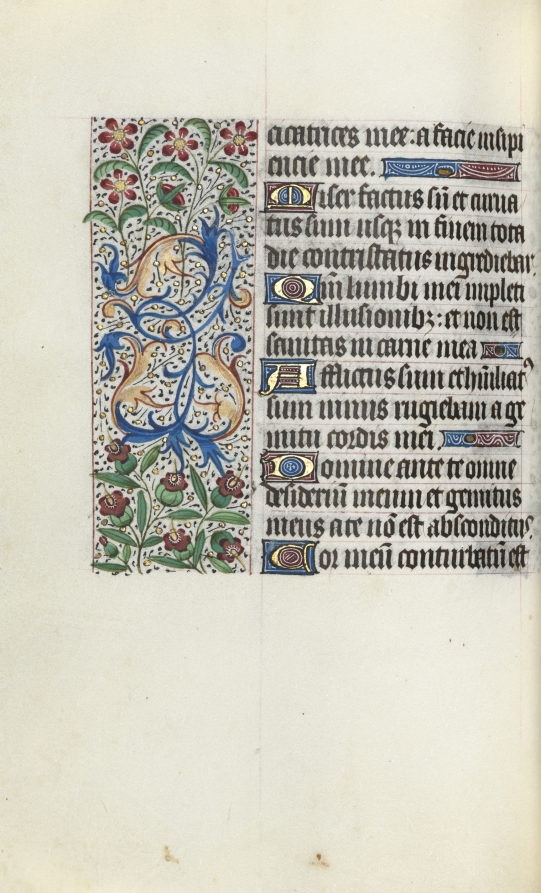 cicatrices mee: a facie insipi
encie mee.
Miser factus sũ et curua
tus sum usqꝫ in finem tota
die contristatus ingrediebar.
Qm̃ lumbi mei impleti
sunt illusionibꝫ: et non est
sanitas in carne mea
Afflictus sum et hũiliatꝰ
sum nimis rugiebam a ge
mitu cordis mei.
Domine ante te omne
desideriũ meum et gemitus
meus a te nõ est absconditus.
Cor meũ conturbatũ est